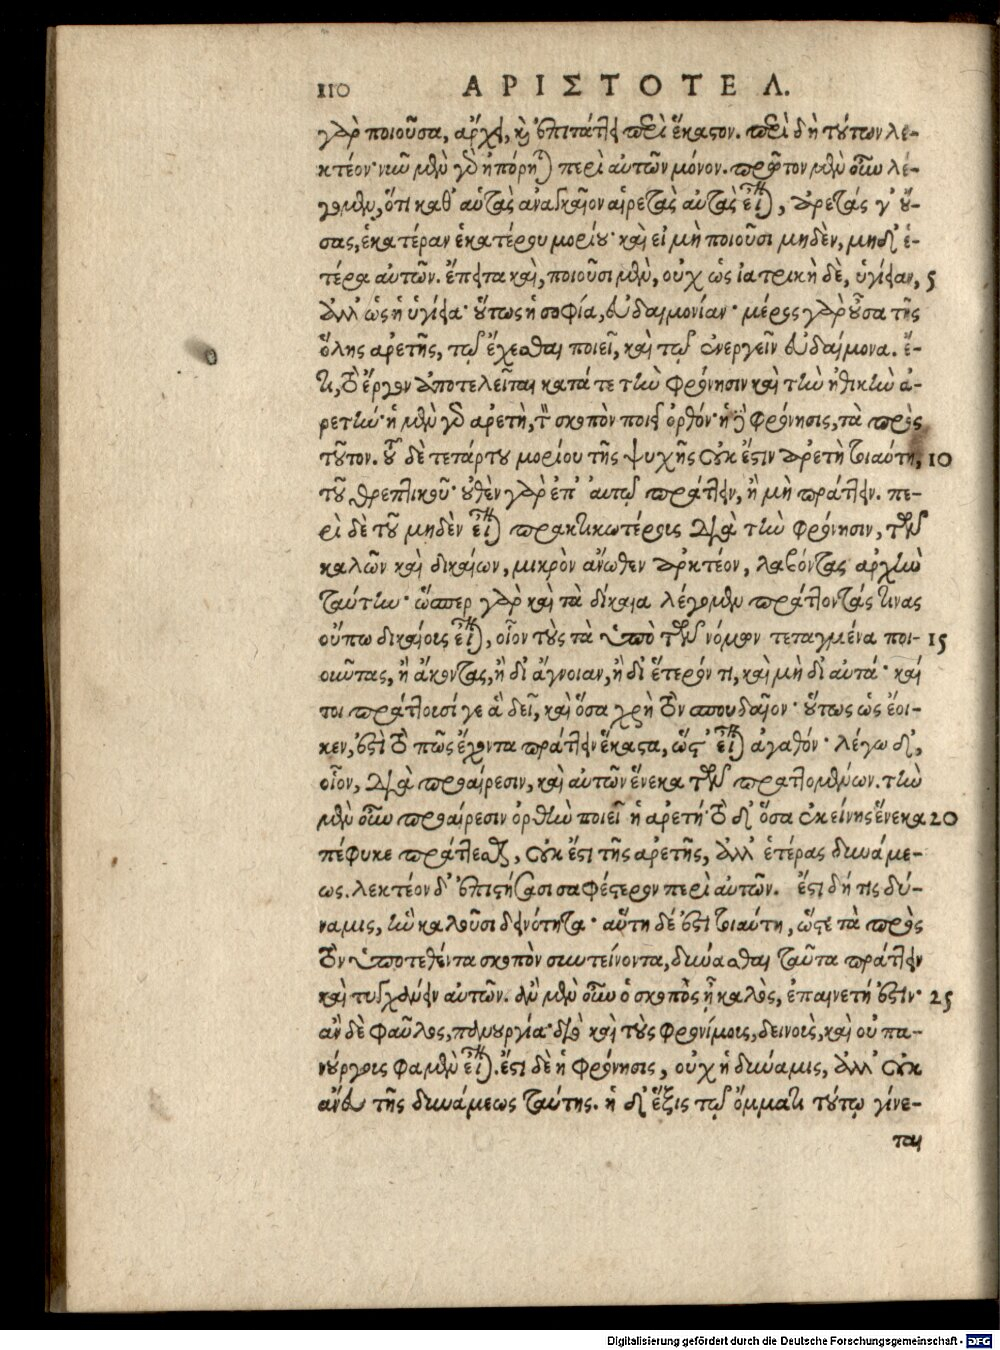 110 ΑΡΙΣΤΟΤΕΛ.
γὰρ ποιοῦσα, ἄρχει, καὶ ἐπιτάττει περὶ ἕκαστον. περὶ δὴ τούτων λε-
κτέον· νῦν μὲν γὰρ ἠπόρηται περὶ αὐτῶν μόνον. πρῶτον μὲν οὖν λέ-
γομεν, ὅτι καθ' αὑτὰς ἀναγκαῖον αἱρετὰς αὐτὰς εἶναι, ἀρετάς γ' οὔ-
σας, ἑκατέραν ἑκατέρου μορίου· καὶ εἰ μὴ ποιοῦσι μηδὲν, μηδ' ἑ-
τέρα αὐτῶν. ἔπειτα καὶ, ποιοῦσι μὲν, οὐχ ὡς ἰατρικὴ δὲ, ὑγίειαν, 5
ἀλλ' ὡς ἡ ὑγίεια· οὕτως ἡ σοφία, εὐδαιμονίαν· μέρος γὰρ οὖσα τῆς
ὅλης ἀρετῆς, τῷ ἔχεσθαι ποιεῖ, καὶ τῷ ἐνεργεῖν εὐδαίμονα. ἔ-
τι, τὸ ἔργον ἀποτελεῖται κατά τε τὴν φρόνησιν καὶ τὴν ἠθικὴν ἀ-
ρετήν· ἡ μὲν γὰρ ἀρετὴ, τὸν σκοπὸν ποιεῖ ὀρθόν· ἡ δὲ φρόνησις, τὰ πρὸς
τοῦτον. τοῦ δὲ τετάρτου μορίου τῆς ψυχῆς οὐκ ἔστιν ἀρετὴ τοιαύτη, 10
τοῦ θρεπτικοῦ· οὐθὲν γὰρ ἐπ' αὐτῷ πράττειν, ἢ μὴ πράττειν. πε-
ρὶ δὲ τοῦ μηδὲν εἶναι πρακτικωτέροις διὰ τὴν φρόνησιν, τῶν
καλῶν καὶ δικαίων, μικρὸν ἄνωθεν ἀρκτέον, λαβόντας ἀρχὴν
ταύτην· ὥσπερ γὰρ καὶ τὰ δίκαια λέγομεν πράττοντάς τινας
οὔπω δικαίοις εἶναι, οἷον τοὺς τὰ ὑπὸ τῶν νόμων τεταγμένα ποι- 15
οιῶτας, ἢ ἄκοντας, ἢ δι' ἄγνοιαν, ἢ δι' ἕτερόν τι, καὶ μὴ δι' αὐτά· καί
τοι πράττουσί γε ἃ δεῖ, καὶ ὅσα χρὴ τὸν σπουδαῖον· οὕτως ὡς ἔοι-
κεν, ἔστι τὸ πῶς ἔχοντα πράττειν ἕκαστα, ὥστ' εἶναι ἀγαθόν· λέγω δ',
οἷον, διὰ προαίρεσιν, καὶ αὐτῶν ἕνεκα τῶν πραττομένων. τὴν
μὲν οὖν προαίρεσιν ὀρθὴν ποιεῖ ἡ ἀρετή· τὸ δ' ὅσα ἐκείνης ἕνεκα 20
πέφυκε πράττεσθαι, οὐκ ἔστι τῆς ἀρετῆς, ἀλλ' ἑτέρας δυνάμε-
ως. λεκτέον δ' ἐπιστήσασι σαφέστερον περὶ αὐτῶν. ἔστι δή τις δύ-
ναμις, ἣν καλοῦσι δεινότητα· αὕτη δέ ἐστι τοιαύτη, ὥστε τὰ πρὸς
τὸν ὑποτεθέντα σκοπὸν συντείνοντα, δύνασθαι ταῦτα πράττειν
καὶ τυγχάνειν αὐτῶν. ἂν μὲν οὖν ὁ σκοπὸς ᾖ καλὸς, ἐπαινετή ἐστιν· 25
ἂν δὲ φαῦλος, πανουργία· διὸ καὶ τοὺς φρονίμους, δεινοὺς, καὶ οὐ πα-
νούργοις φαμὲν εἶναι. ἔστι δὲ ἡ φρόνησις, οὐχ ἡ δύναμις, ἀλλ' οὐκ
ἄνευ τῆς δυνάμεως ταύτης. ἡ δ' ἕξις τῷ ὄμματι τούτῳ γίνε-
ται
Digitalisierung gefördert durch die Deutsche Forschungsgemeinschaft - DFG